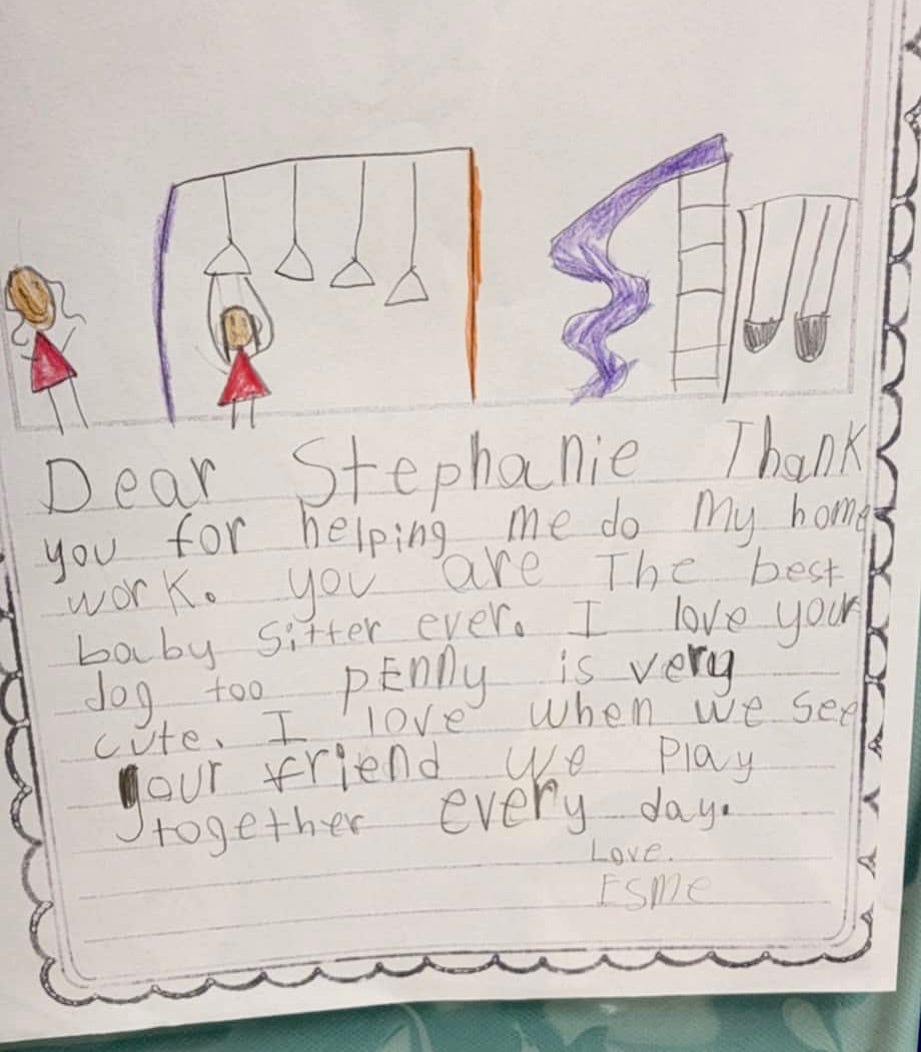 Dear Stephanie Thank
you for helping me do My home
work. you are The best
baby sitter ever. I love your
dog too pEnny is very
cute. I love when we see
your friend we Play
together every day.
Love.
Esme